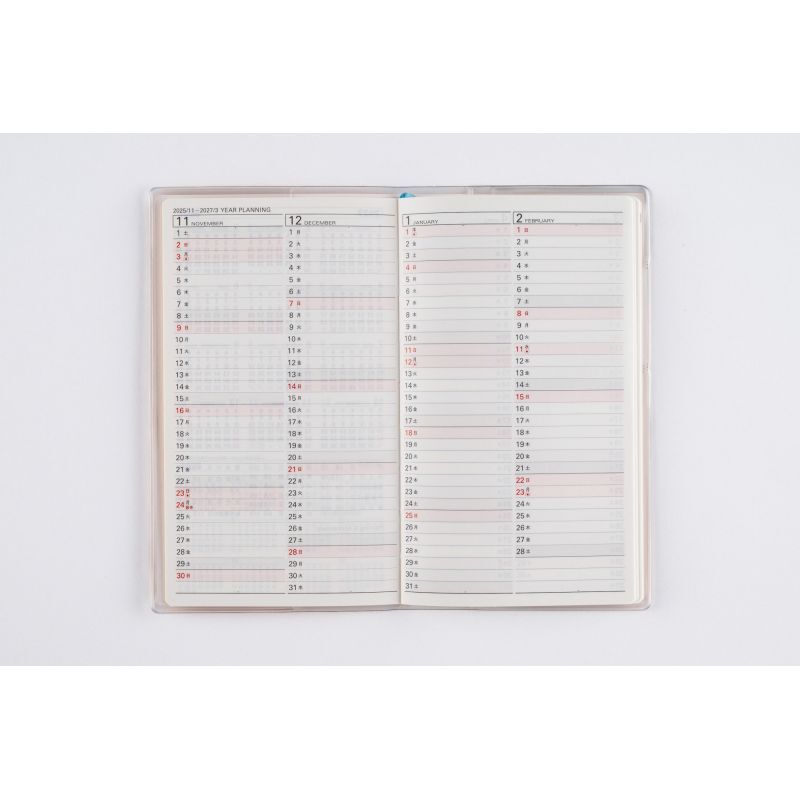 2025/11−2027/3 YEAR PLANNING
11 NOVEMBER
1 土
2 日
3 月
4 火
5 水
6 木
7 金
8 土
9 日
10 月
11 火
12 水
13 木
14 金
15 土
16 日
17 月
18 火
19 水
20 木
21 金
22 土
23 日
24 月
25 火
26 水
27 木
28 金
29 土
30 日
12 DECEMBER
1 月
2 火
3 水
4 木
5 金
6 土
7 日
8 月
9 火
10 水
11 木
12 金
13 土
14 日
15 月
16 火
17 水
18 木
19 金
20 土
21 日
22 月
23 火
24 水
25 木
26 金
27 土
28 日
29 月
30 火
31 水
1 JANUARY
1 木
2 金
3 土
4 日
5 月
6 火
7 水
8 木
9 金
10 土
11 日
12 月
13 火
14 水
15 木
16 金
17 土
18 日
19 月
20 火
21 水
22 木
23 金
24 土
25 日
26 月
27 火
28 水
29 木
30 金
31 土
2 FEBRUARY
1 日
2 月
3 火
4 水
5 木
6 金
7 土
8 日
9 月
10 火
11 水
12 木
13 金
14 土
15 日
16 月
17 火
18 水
19 木
20 金
21 土
22 日
23 月
24 火
25 水
26 木
27 金
28 土